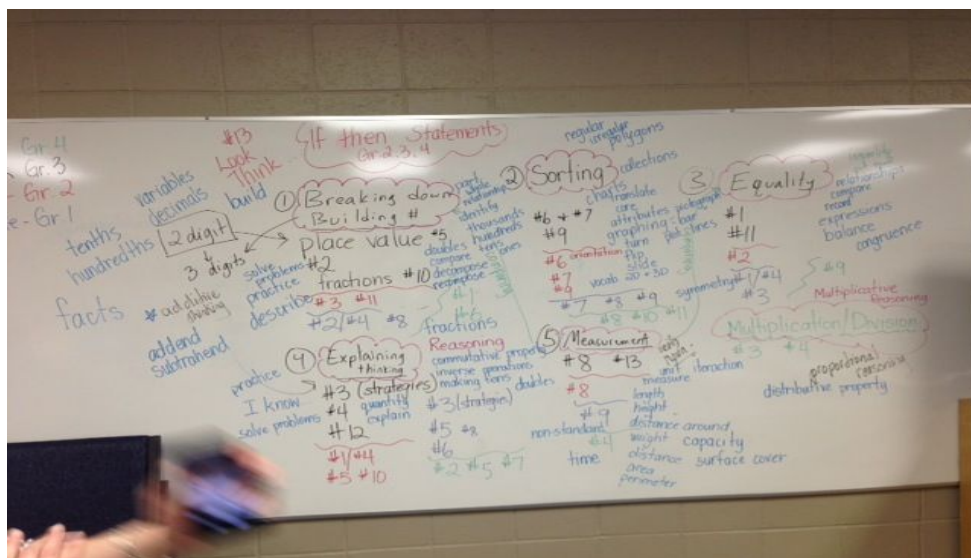 Gr. 4
Gr. 3
Gr. 2
Gr. 1
#13
Look
Think
build
If then Statements
Gr. 2, 3, 4
variables
decimals
tenths
hundredths
2 digit
3 digits
facts
* additive
thinking
addend
subtrahend
① Breaking down
Building #
place value #5
#2
fractions #10
#3 #11
#2/#4 #8
solve
problems
practice
describe
part
whole
relationship
identify
thousands
hundreds
tens
ones
doubles
compare
decompose
recompose
#1
#6
② Sorting
regular
irregular
polygons
collections
charts
translate
core
attributes
pictograph
graphing
bar
turn
plot
lines
flip
slide
vocab 2D + 3D
#6 + #7
#9
#6 orientation
#7
#9
#7 #8 #9
#8 #10 #11
symmetry
③ Equality
#1
#11
#2
#1/#4
#3
relationships
compare
record
expressions
balance
congruence
#9
Multiplicative
Reasoning
Multiplication/Division
#3 #4
proportional
reasoning
distributive property
④ Explaining
thinking
practice
I know
solve problems
#3 (strategies)
#4
#12
quantify
explain
#1/#4
#5 #10
fractions
Reasoning
commutative property
inverse operations
making tens
doubles
#3 (strategies)
#5 #8
#6
#2 #5 #7
⑤ Measurement
#8 #13
#8
#9
#4
non-standard
time
unit iteration
measure
length
height
distance around
weight capacity
distance surface cover
area
perimeter